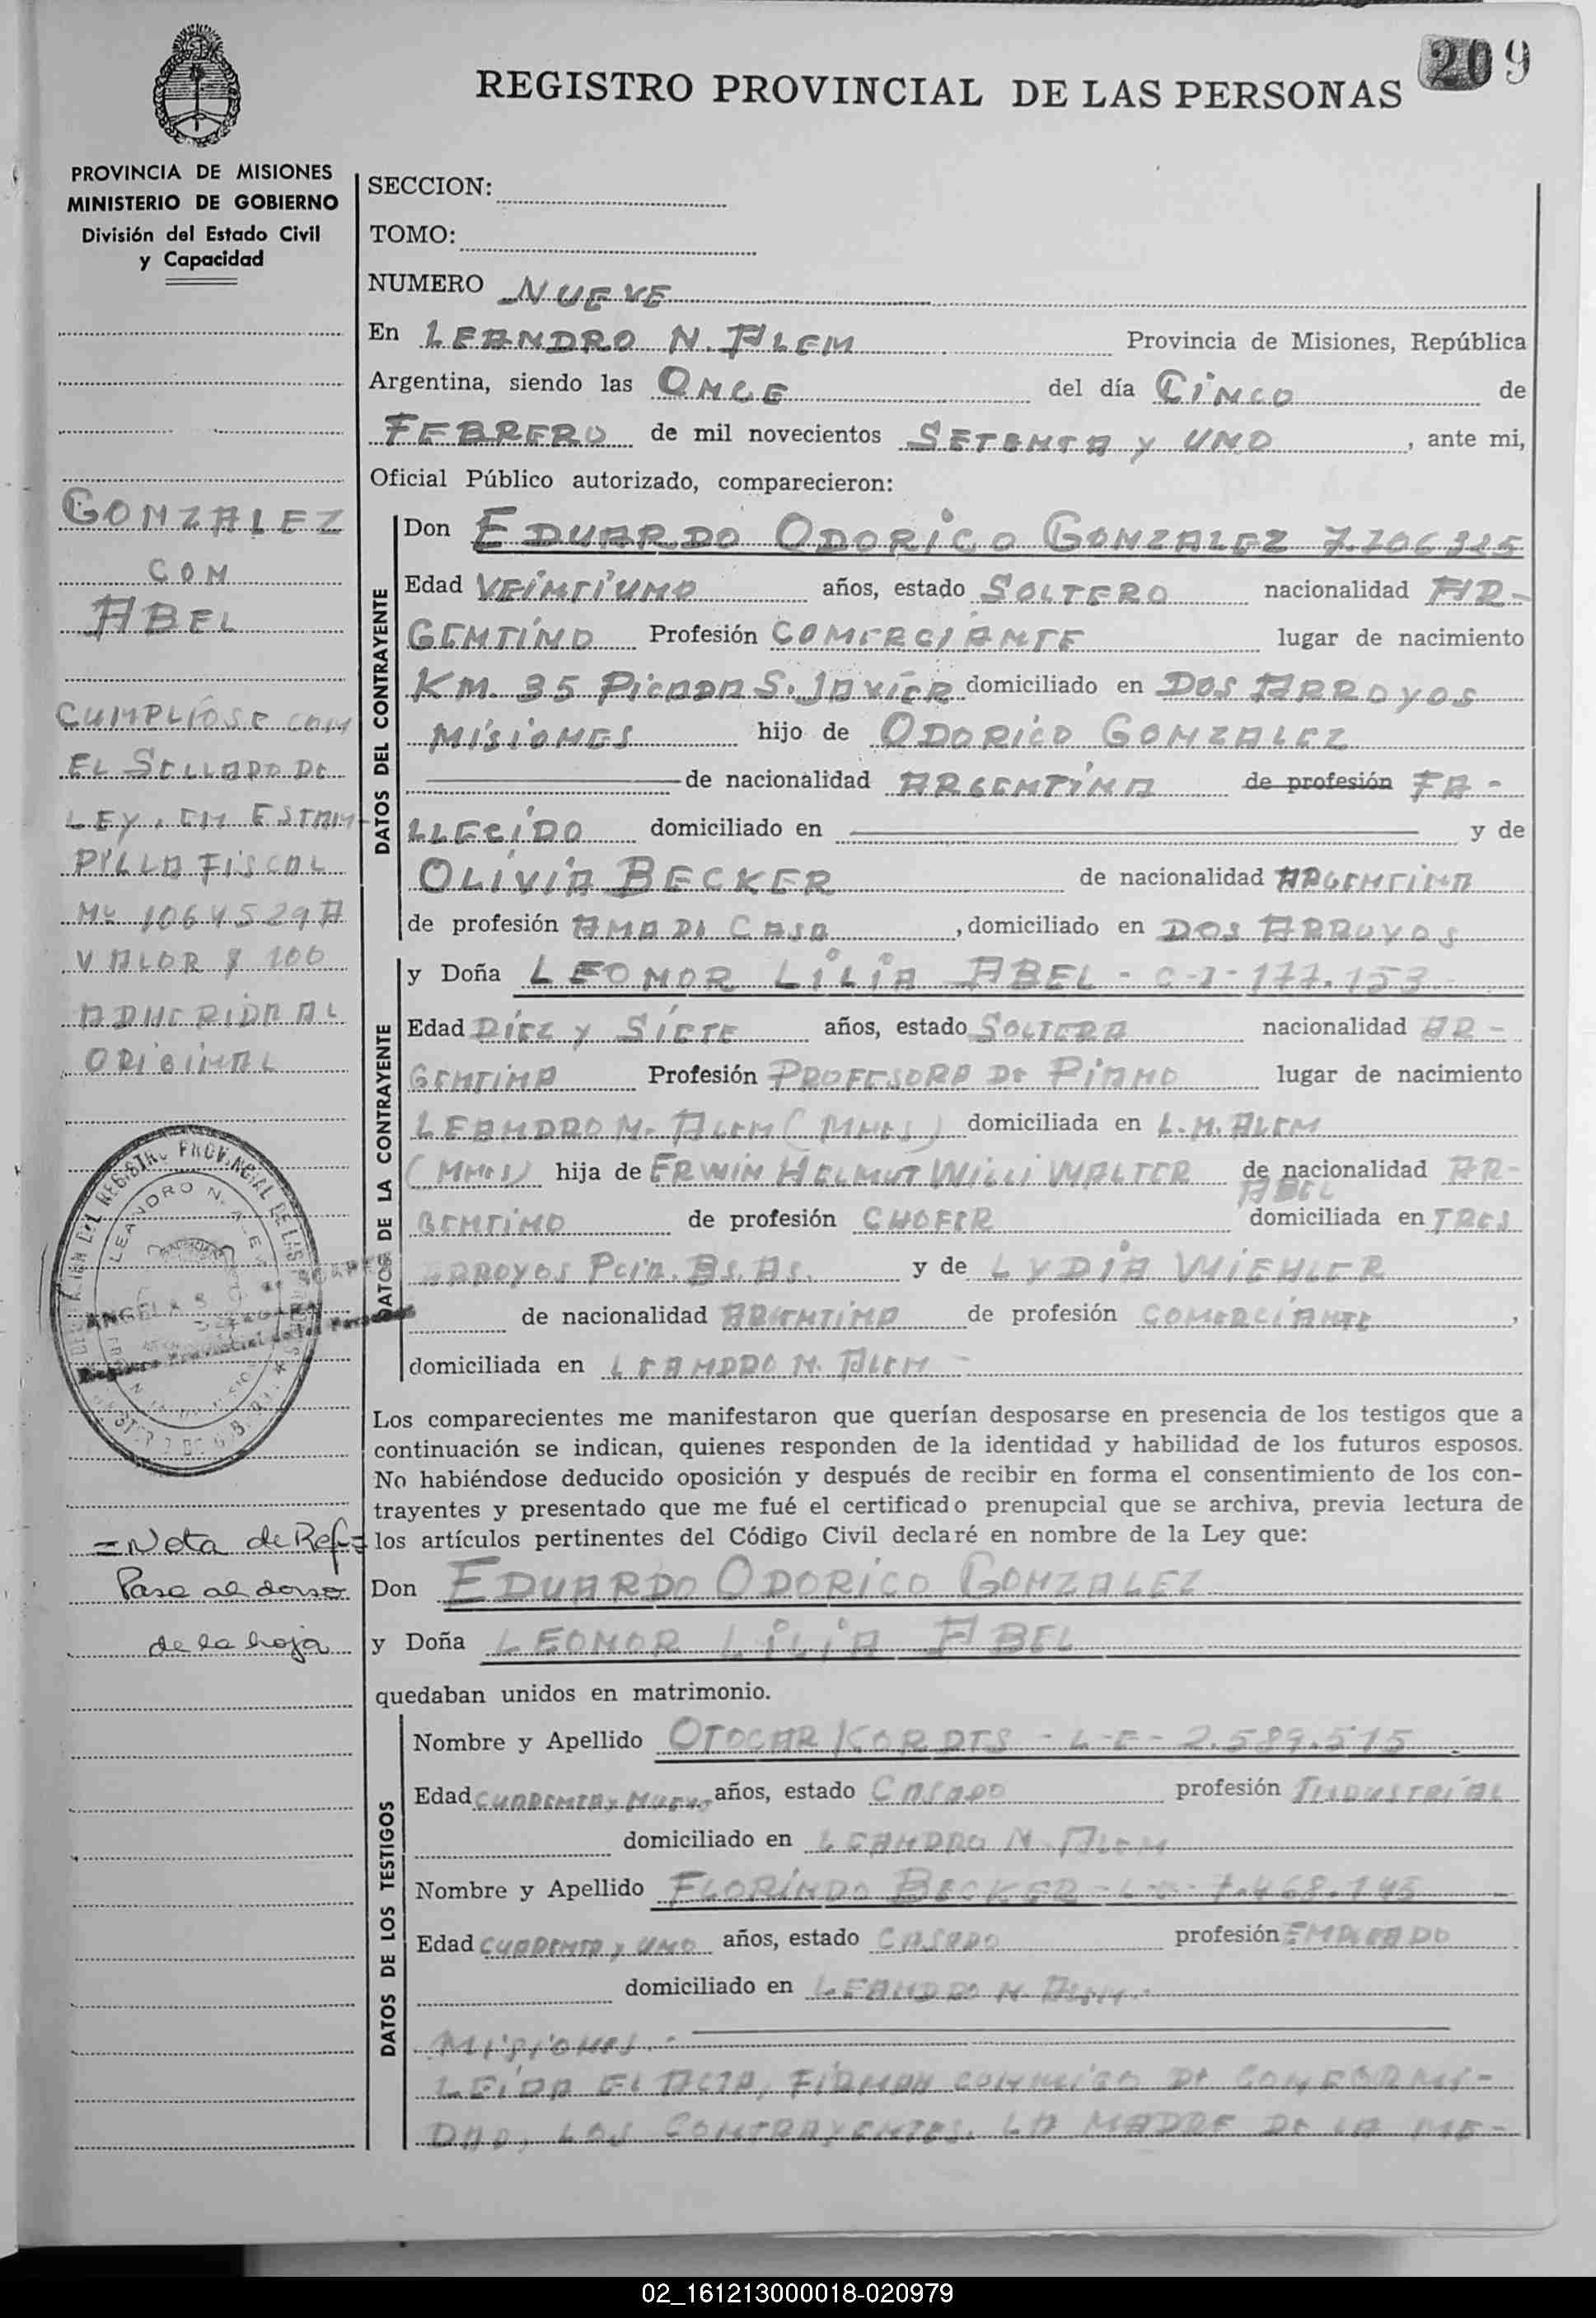 209
REGISTRO PROVINCIAL DE LAS PERSONAS
PROVINCIA DE MISIONES
MINISTERIO DE GOBIERNO
División del Estado Civil
y Capacidad
GONZALEZ
CON
ABEL
CUMPLIOSE CON
EL SELLADO DE
LEY, EN ESTAM-
PILLA FISCAL
Nº 1064529 A
VALOR $ 100
ADHERIDA AL
ORIGINAL
LEANDRO N. ALEM
= Nota de Ref =
Pasa al dorso
de la hoja
SECCION:
TOMO:
NUMERO NUEVE
En LEANDRO N. ALEM Provincia de Misiones, República
Argentina, siendo las ONCE del día CINCO de
FEBRERO de mil novecientos SETENTA y UNO, ante mi,
Oficial Público autorizado, comparecieron:
DATOS DEL CONTRAYENTE
Don EDUARDO ODORICO GONZALEZ
Edad VEINTIUNO años, estado SOLTERO nacionalidad AR-
GENTINO Profesión COMERCIANTE lugar de nacimiento
KM. 35 PICADA S. JAVIER domiciliado en DOS ARROYOS
MISIONES hijo de ODORICO GONZALEZ
de nacionalidad ARGENTINA de profesión FA-
LLECIDO domiciliado en y de
OLIVIA BECKER de nacionalidad ARGENTINA
de profesión AMA DE CASA, domiciliado en DOS ARROYOS
DATOS DE LA CONTRAYENTE
y Doña LEONOR LILIA ABEL - C-I- 177.153
Edad DIEZ y SIETE años, estado SOLTERA nacionalidad AR-
GENTINA Profesión PROFESORA DE PIANO lugar de nacimiento
LEANDRO N. ALEM (MNES) domiciliada en L. N. ALEM
(MNES) hija de ERWIN HELMUT WILLI WALTER de nacionalidad AR-
ABEL
GENTINO de profesión CHOFER domiciliada en TRES
ARROYOS PCIA. BS. AS. y de LYDIA WIEHLER
de nacionalidad ARGENTINA de profesión COMERCIANTE,
domiciliada en LEANDRO N. ALEM -
Los comparecientes me manifestaron que querían desposarse en presencia de los testigos que a
continuación se indican, quienes responden de la identidad y habilidad de los futuros esposos.
No habiéndose deducido oposición y después de recibir en forma el consentimiento de los con-
trayentes y presentado que me fué el certificado prenupcial que se archiva, previa lectura de
los artículos pertinentes del Código Civil declaré en nombre de la Ley que:
Don EDUARDO ODORICO GONZALEZ
y Doña LEONOR LILIA ABEL
quedaban unidos en matrimonio.
DATOS DE LOS TESTIGOS
Nombre y Apellido OTOCAR KORDTS - L-E- 2.589.515
Edad CUARENTA y NUEVE años, estado CASADO profesión INDUSTRIAL
domiciliado en LEANDRO N. ALEM
Nombre y Apellido FLORINDO BECKER
Edad CUARENTA y UNO años, estado CASADO profesión EMPLEADO
domiciliado en LEANDRO N. ALEM.-
MISIONES.-
LEIDA EL ACTA, FIRMAN CONMIGO DE CONFORMI-
DAD, LOS CONTRAYENTES, LA MADRE DE LA ME-
02_161213000018-020979